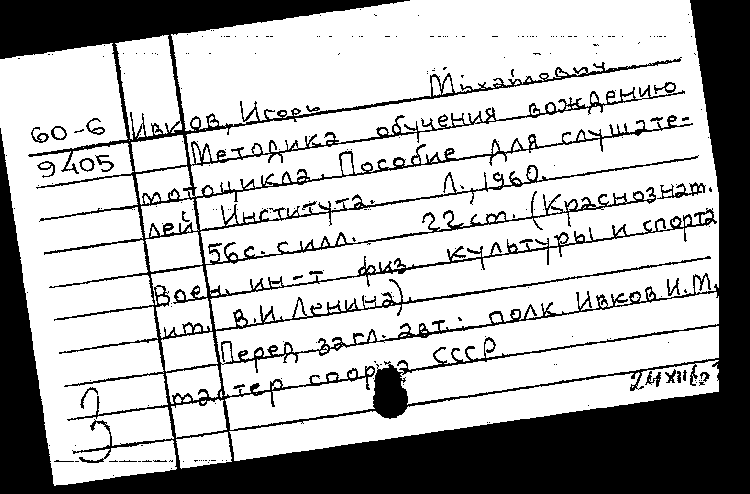 60-6
9405
Ивков, Игорь Михайлович
Методика обучения вождению
мотоцикла. Пособие для слушате-
лей Института. Л., 1960.
56с. с илл. 22см. (Краснознам.
Воен. ин-т физ. культуры и спорта
им. В.И. Ленина).
Перед загл. авт.: полк. Ивков И.М.,
мастер спорта СССР.
3